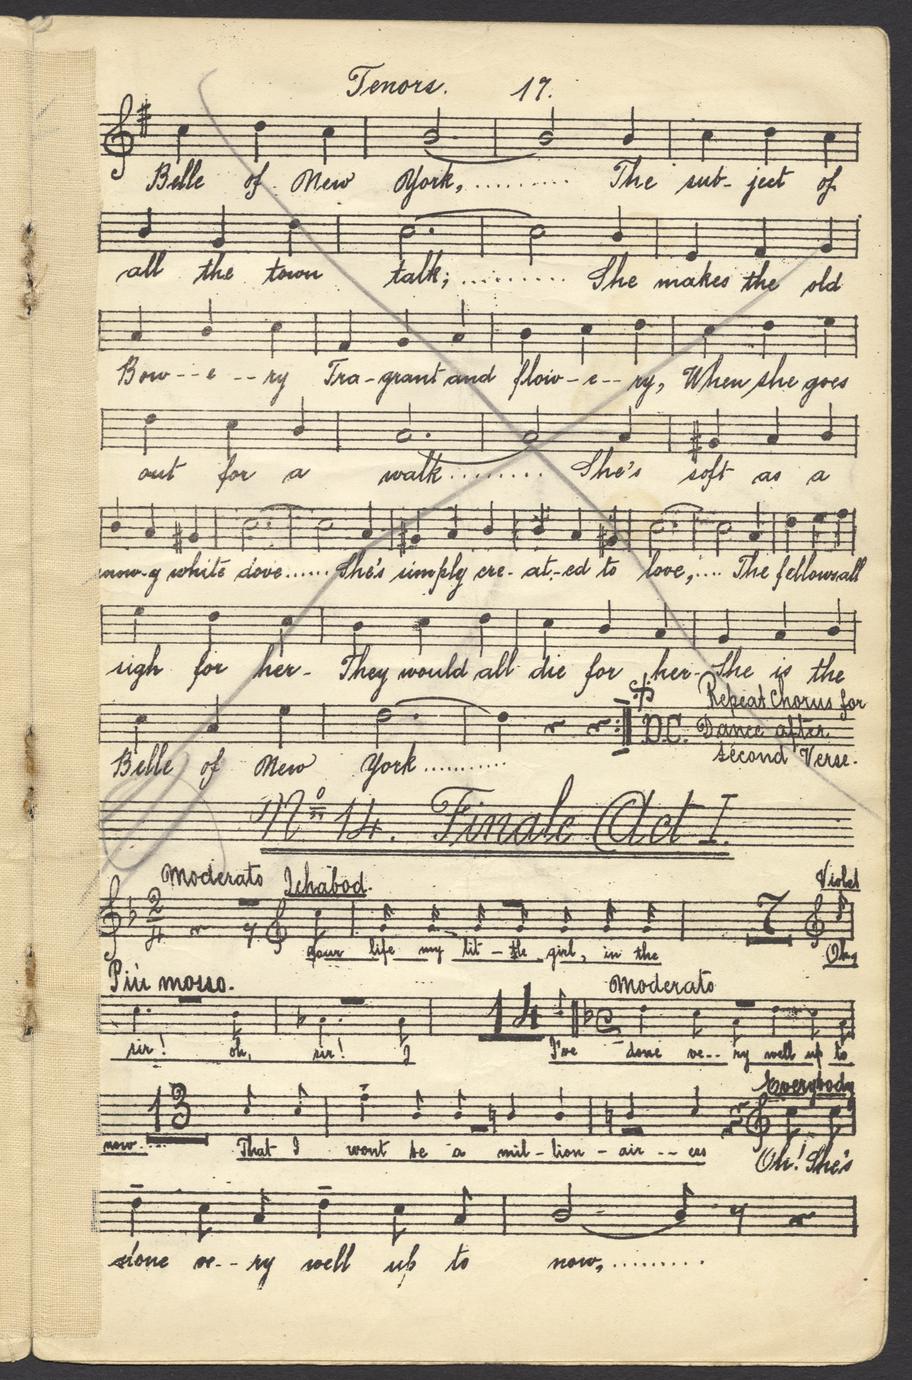 Tenors. 17.
Belle of New York,.......... The sub- ject of
all the town talk;.......... She makes the old
Bow--e--ry Fra-grant and flow-e--ry, When she goes
out for a walk......... She's soft as a
snow-y white dove...... She's simply cre-at-ed to love,.... The fellows all
sigh for her- They would all die for her- She is the
D.C. Repeat Chorus for
Dance after
second Verse.
Belle of New York..........
No 14. Finale Act I.
Moderato Ichabod. Violet
2/4 7
your life my lit-tle girl, in the Oh,
Più mosso. Moderato
14
sir! oh, sir! I I've done ve--ry well up to
Everybody
13
now... That I wont be a mil-lion-air--ess Oh! She's
done ve--ry well up to now,..........